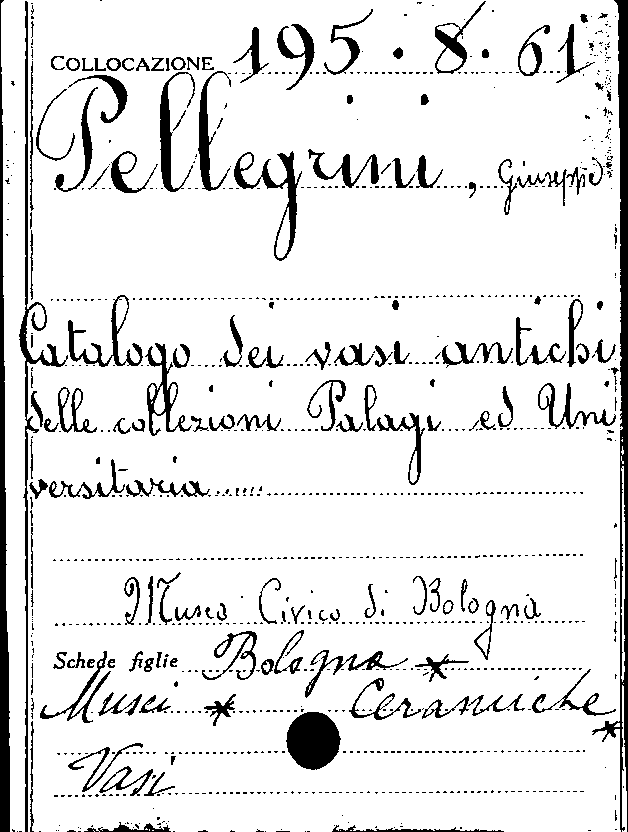 COLLOCAZIONE 195.8.61
Pellegrini, Giuseppe
Catalogo dei vasi antichi
delle collezioni Palagi ed Uni
versitaria......
Museo Civico di Bologna
Schede figlie Bologna *
Musei * Ceramiche *
Vasi